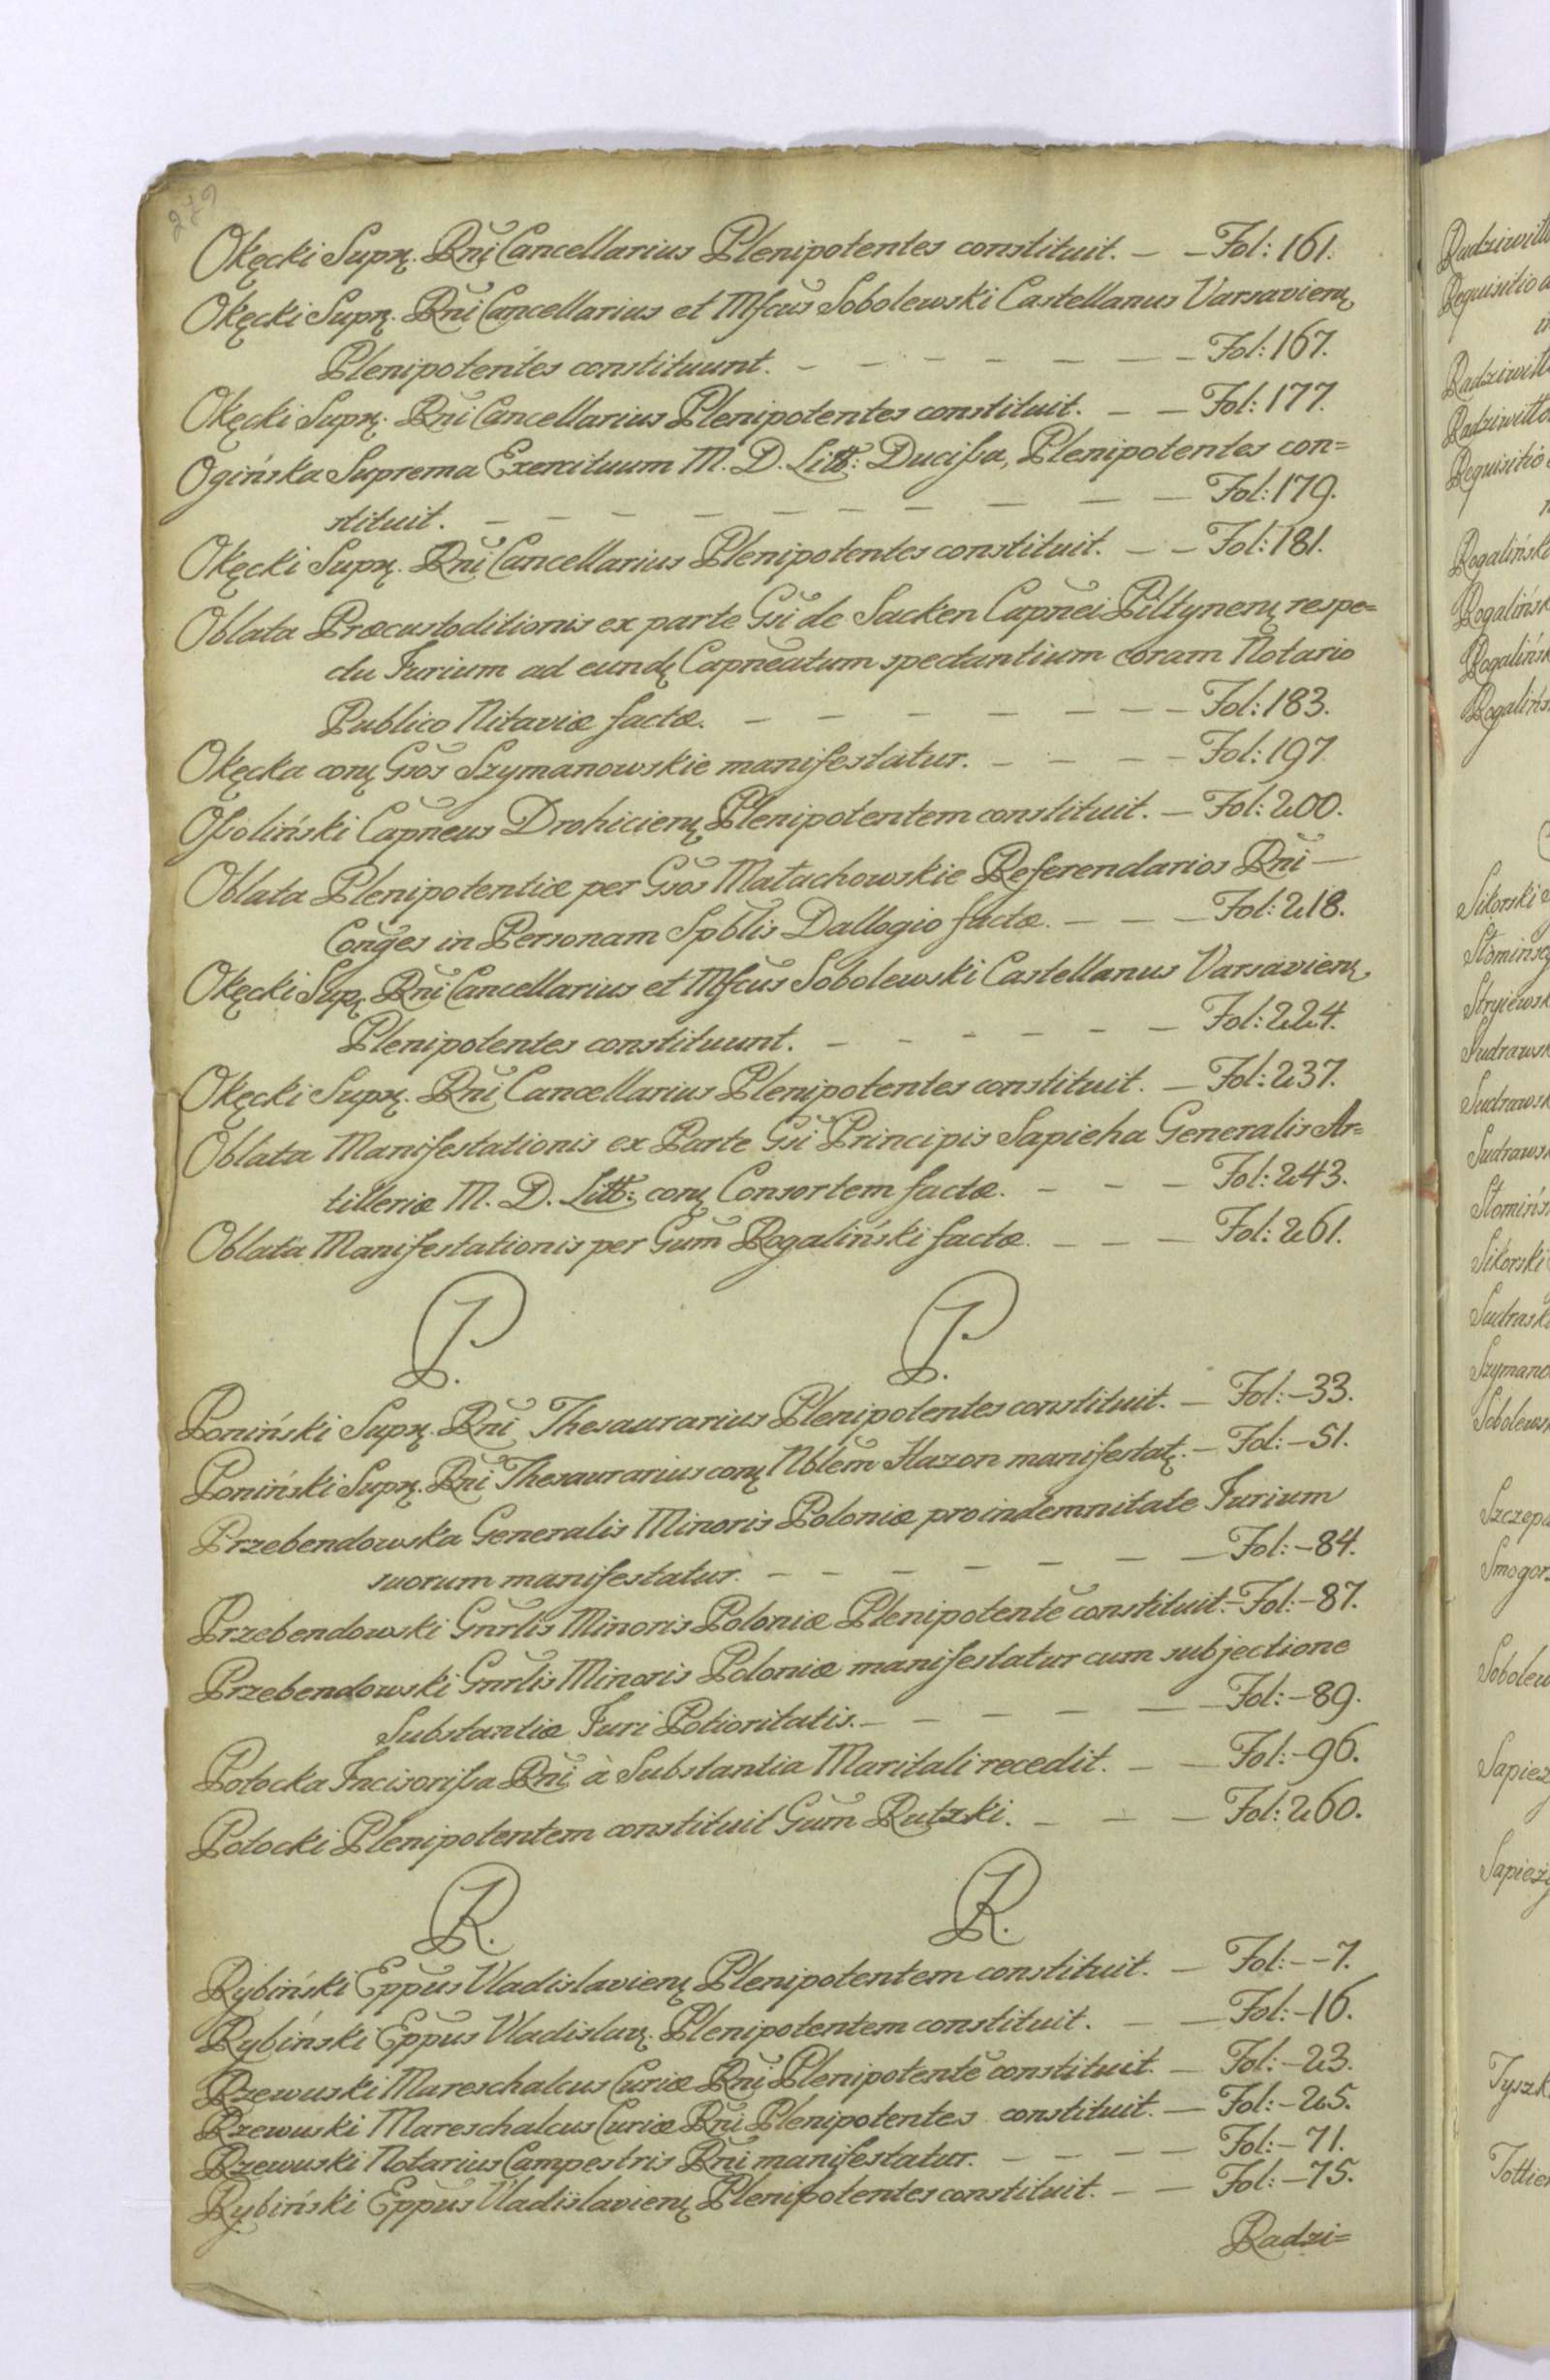 279
Okęcki Supr. Rni Cancellarius Plenipotentes constituit. — — Fol: 161.
Okęcki Supr. Rni Cancellarius et Mfcus Sobolewski Castellanus Varsavien
Plenipotentes constituunt. — — — — — — — Fol: 167.
Okęcki Supr. Rni Cancellarius Plenipotentes constituit. — — Fol: 177.
Ogińska Suprema Exercituum M. D. Litt: Ducissa, Plenipotentes con=
stituit. — — — — — — — — — — Fol: 179.
Okęcki Supr. Rni Cancellarius Plenipotentes constituit. — — Fol: 181.
Oblata Præcustoditionis ex parte Gsi de Sacken Capnei Piltynen respe=
ctu Jurium ad eund Capneatum spectantium coram Notario
Publico Mitaviæ factæ. — — — — — — — Fol: 183.
Okęcka con Gsos Szymanowskie manifestatur. — — — — Fol: 197.
Ossoliński Capneus Drohicien Plenipotentem constituit. — Fol: 200.
Oblata Plenipotentiæ per Gsos Małachowskie Referendarios Rni —
Conges in Personam Spblis Dallogio factæ. — — — Fol: 218.
Okęcki Sup Rni Cancellarius et Mfcus Sobolewski Castellanus Varsavien,
Plenipotentes constituunt. — — — — — — Fol: 224.
Okęcki Supr. Rni Cancellarius Plenipotentes constituit. — Fol: 237.
Oblata Manifestationis ex Parte Gsi Principis Sapieha Generalis Ar=
tilleriæ M. D. Litt: con Consortem factæ. — — — Fol: 243.
Oblata Manifestationis per Gum Rogaliński factæ. — — — Fol: 261.
P. P.
Poniński Supr. Rni Thesaurarius Plenipotentes constituit. — Fol: — 33.
Poniński Supr. Rni Thesaurarius con Nblem Hazon manifestat. — Fol: — 51.
Przebendowska Generalis Minoris Poloniæ pro indemnitate Jurium
suorum manifestatur. — — — — — — — Fol: — 84.
Przebendowski Gnrlis Minoris Poloniæ Plenipotentē constituit. — Fol: — 87.
Przebendowski Gnrlis Minoris Poloniæ manifestatur cum subjectione
Substantiæ Juri Potioritatis. — — — — — — Fol: — 89.
Potocka Incisorissa Rni à Substantia Maritali recedit. — — Fol: — 96.
Potocki Plenipotentem constituit Gum Rutski. — — — Fol: 260.
R. R.
Rybiński Eppus Vladislavien Plenipotentem constituit. — Fol: — — 7.
Rybiński Eppus Vladislav. Plenipotentem constituit. — — Fol: — 16.
Rzewuski Mareschalcus Curiæ Rni Plenipotentē constituit. — Fol: — 23.
Rzewuski Mareschalcus Curiæ Rni Plenipotentes constituit. — Fol: — 25.
Rzewuski Notarius Campestris Rni manifestatur. — — — — Fol: — 71.
Rybiński Eppus Vladislavien Plenipotentes constituit. — — Fol: — 75.
Radzi=